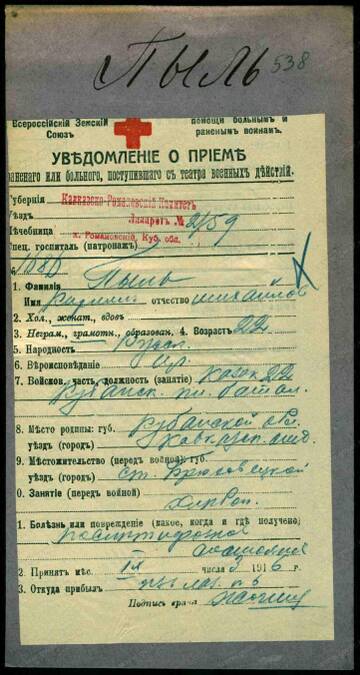 Пыль 538
Всероссійскій Земскій
Союзъ
помощи больнымъ и
раненымъ воинамъ.
УВѢДОМЛЕНІЕ О ПРІЕМѢ
раненаго или больного, поступившаго съ театра военныхъ дѣйствій.
Губернія Кавказско-Романовскій Комитетъ
Уѣздъ Лазаретъ №
Лечебница х. Романовскій, Куб. обл.
Спец. госпиталь (патронажъ)
1. Фамилія Пыль
Имя отчество Михайлов
2. Хол., женат., вдовъ
3. Неграм., грамотн., образован. 4. Возрастъ 22
5. Народность русск.
6. Вѣроисповѣданіе
7. Войсков. часть, должность (занятіе) казак 22
Кубанск. пл. батал.
8. Мѣсто родины: губ. Кубанской обл.
уѣздъ (город)
9. Мѣстожительство (передъ войной) губ.
уѣздъ (город) ст. Брюховецкой
0. Занятіе (передъ войной)
1. Болѣзнь или поврежденіе (какое, когда и гдѣ получено)
2. Принятъ мѣс. IX числа 3 1916 г.
3. Откуда прибылъ
Подпись врача